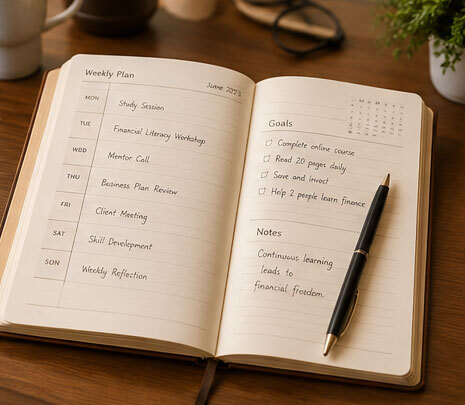 Weekly Plan
June
MON
Study Session
TUE
Financial Literacy Workshop
WED
Mentor Call
THU
Business Plan Review
FRI
Client Meeting
SAT
Skill Development
SUN
Weekly Reflection
Goals
Complete online course
Read 20 pages daily
Save and invest
Help 2 people learn finance
Notes
Continuous learning
leads to
financial freedom.